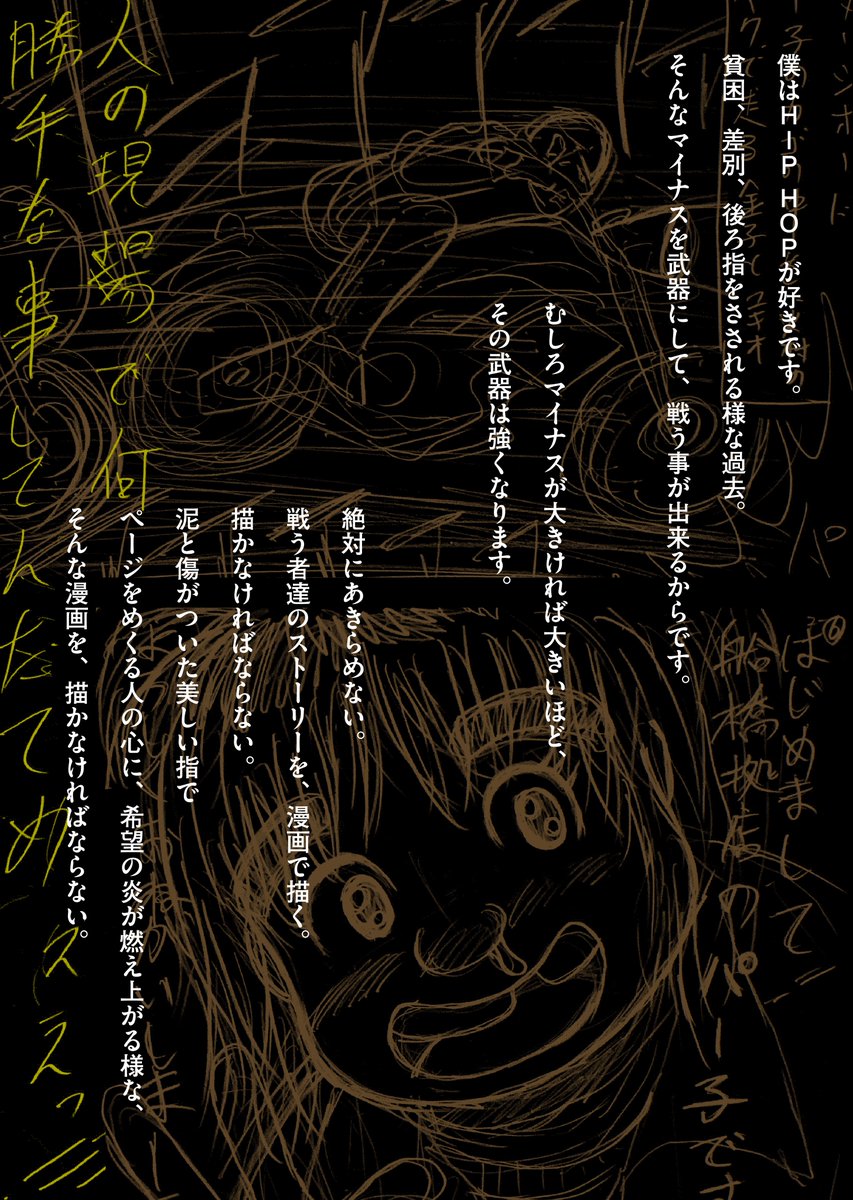 僕はHIP HOPが好きです。
貧困、差別、後ろ指をさされる様な過去。
そんなマイナスを武器にして、戦う事が出来るからです。
むしろマイナスが大きければ大きいほど、
その武器は強くなります。
絶対にあきらめない。
戦う者達のストーリーを、漫画で描く。
描かなければならない。
泥と傷がついた美しい指で
ページをめくる人の心に、希望の炎が燃え上がる様な、
そんな漫画を、描かなければならない。
人の現場で何
勝手な事してんだてめえっ
はじめまして
船橋拠店のパー子です